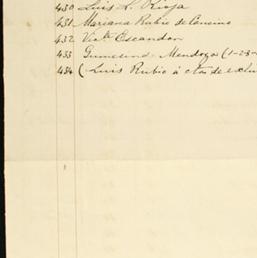 430 Luis L. Rioja
431 Mariana Rubio de Cancino
432 Vic.ta Escandon
433 Gumesind. Mendoza (1-23-
434 (Luis Rubio á ctas de exclu